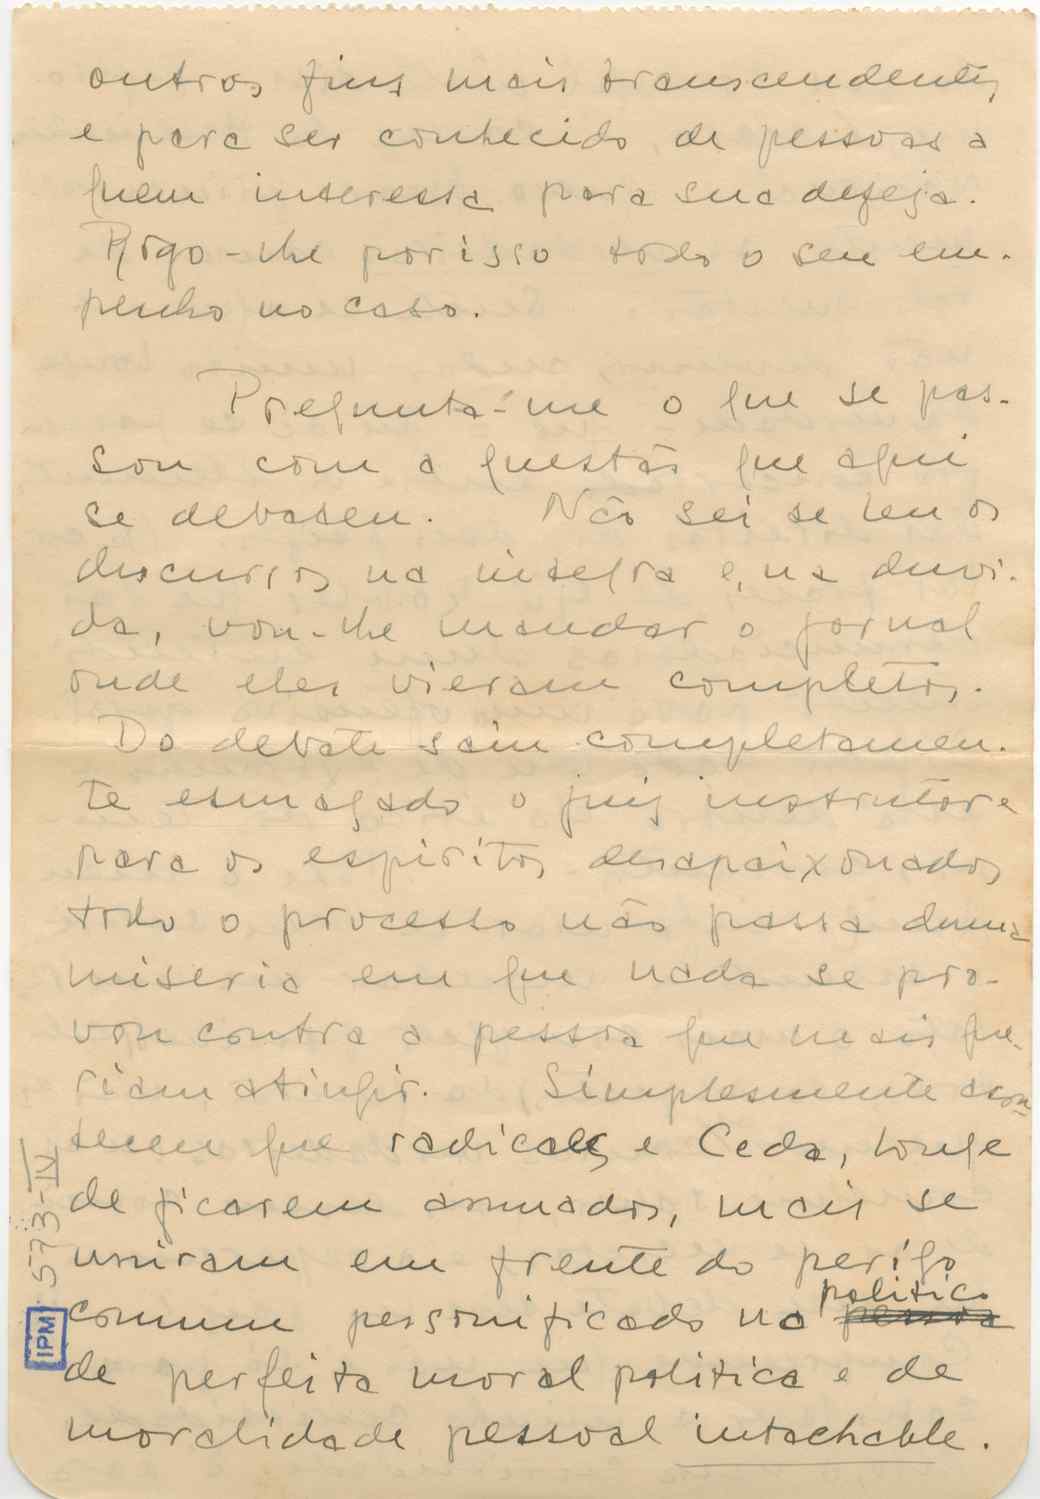 outros fins mais transcendentes
e para ser conhecido de pessoas a
quem interessa para sua defeja.
Rogo-lhe porisso todo o seu em-
penho no caso.
Pregunta-me o que se pas-
sou com a questão que aqui
se debateu. Não sei se leu os
discursos na integra e, na duvi-
da, vou-lhe mandar o jornal
onde eles vieram completos.
Do debate saiu completamen-
te esmagado o juiz instrutor e
para os espiritos desapaixonados
todo o processo não passa duma
miseria em que nada se pro-
vou contra a pessoa que mais que-
riam atingir. Simplesmente acon-
teceu que radicales e Ceda, longe
de ficarem amuados, mais se
uniram em frente do perigo
politico
comum personificado no pessoa
de perfeita moral politica e de
moralidade pessoal intachable.
573-IV
IPM